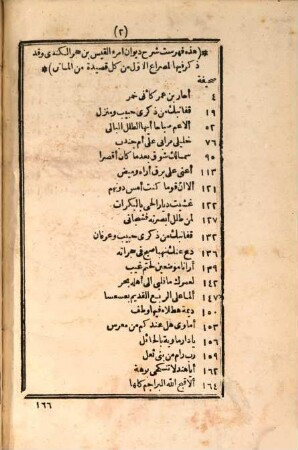 (٢)
*(هذه فهرست شرح ديوان امرء القيس بن حجر الكندى وقد
ذكر فيها المصراع الاول من كل قصيدة من المباني)*
صحيفة
٤ أحار بن عمرو كأنى خمر
١٩ قفانبك من ذكرى حبيب ومنزل
٥٢ ألاعم صباحا أيها الطلل البالى
٧٦ خليلى مرابى على أم جندب
٩٥ سمالك شوق بعدما كان أقصرا
١١٣ أعنى على برق أراه وميض
١٢١ ألا ان قوما كنتم أمس دونهم
١٢٤ غشيت ديار الحى بالبكرات
١٢٧ لمن طلل أبصرته فشجانى
١٣٢ قفانبك من ذكرى حبيب وعرفان
١٣٦ دع عنك نهبا صيح فى حجراته
١٣٩ أرانا موضعين لحتم غيب
١٤٢ لعمرك ما قلبى الى أهله بحر
١٤٧ ألماعلى الربع القديم بعسعسا
١٥٠ ديمة هطلاء فيها وطف
١٥٣ أماوى هل عندكم من معرس
١٥٦ يادار ماوية بالحائل
١٥٩ رب رام من بنى ثعل
١٦٢ أيا هند لا تنكحى بوهة
١٦٤ ألا قبح الله البراجم كلها
١٦٦